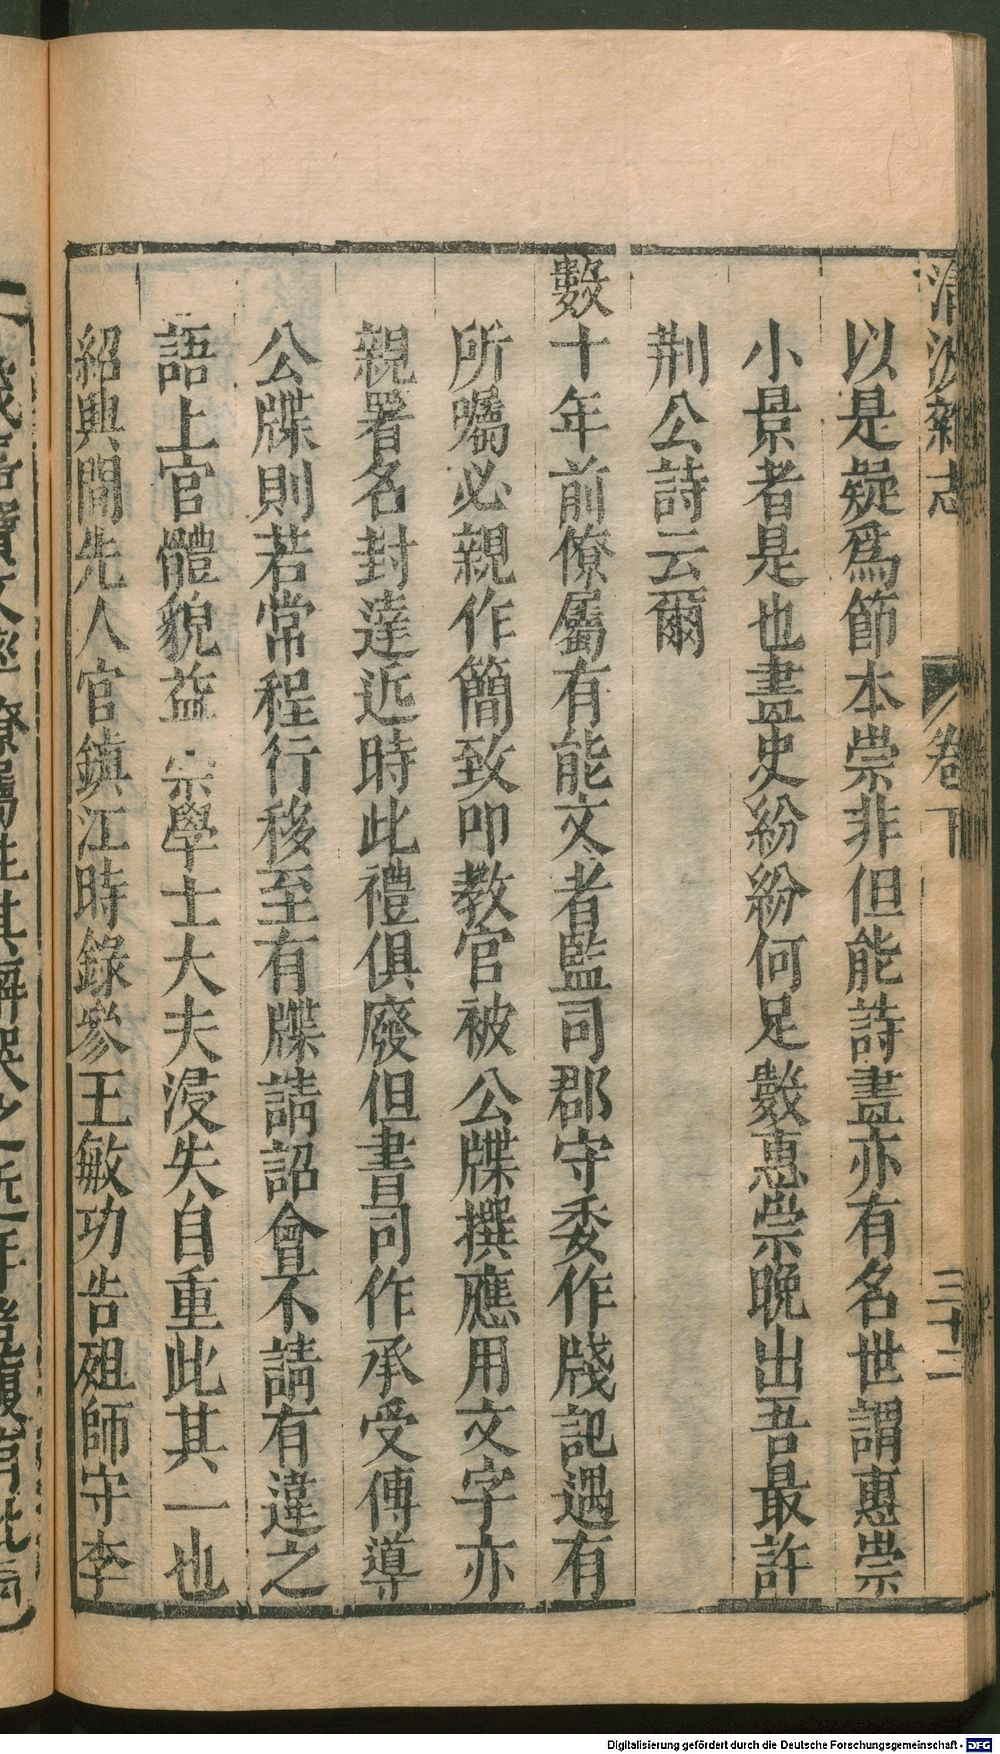 清波雜志
卷下
三十二
以是疑爲節本崇非但能詩畫亦有名世謂惠崇
小景者是也畫史紛紛何足數惠崇晚出吾最許
荆公詩云爾
數十年前僚屬有能文者監司郡守委作牋記遇有
所囑必親作簡致叩教官被公牒撰應用文字亦
親署名封達近時此禮俱廢但書司作承受傳導
公牒則若常程行移至有牒請詔會不請有違之
語上官體貌益崇學士大夫浸失自重此其一也
紹興間先人官鎮江時錄參王敏功告殂師守李
Digitalisierung gefördert durch die Deutsche Forschungsgemeinschaft - DFG